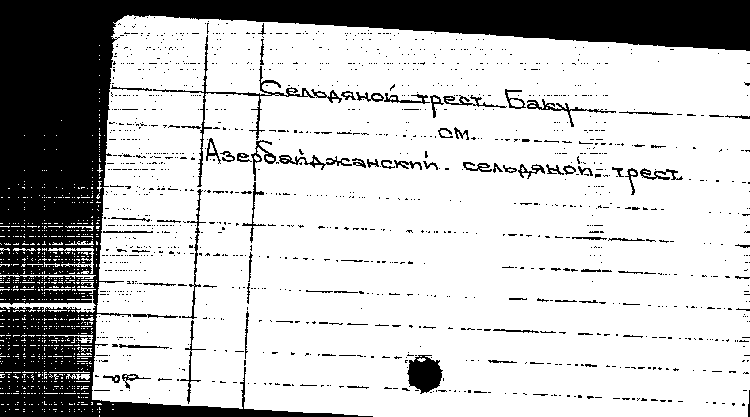 Сельдяной трест. Баку.
см.
Азербайджанский сельдяной трест